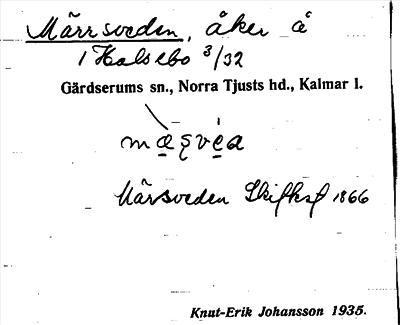 Märrsveden, åker å
1 Halsebo 3/32
Gärdserums sn., Norra Tjusts hd., Kalmar l.
Märsveden 1866
Knut-Erik Johansson 1935.